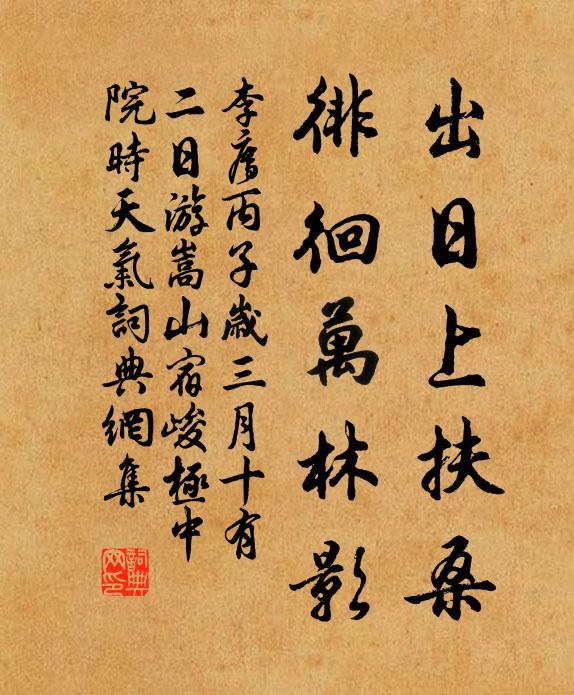 出日上扶桑
徘徊萬林影
李廌丙子歲三月十有
二日游嵩山宿峻極中
院時天氣詞典網集
詞典
网印